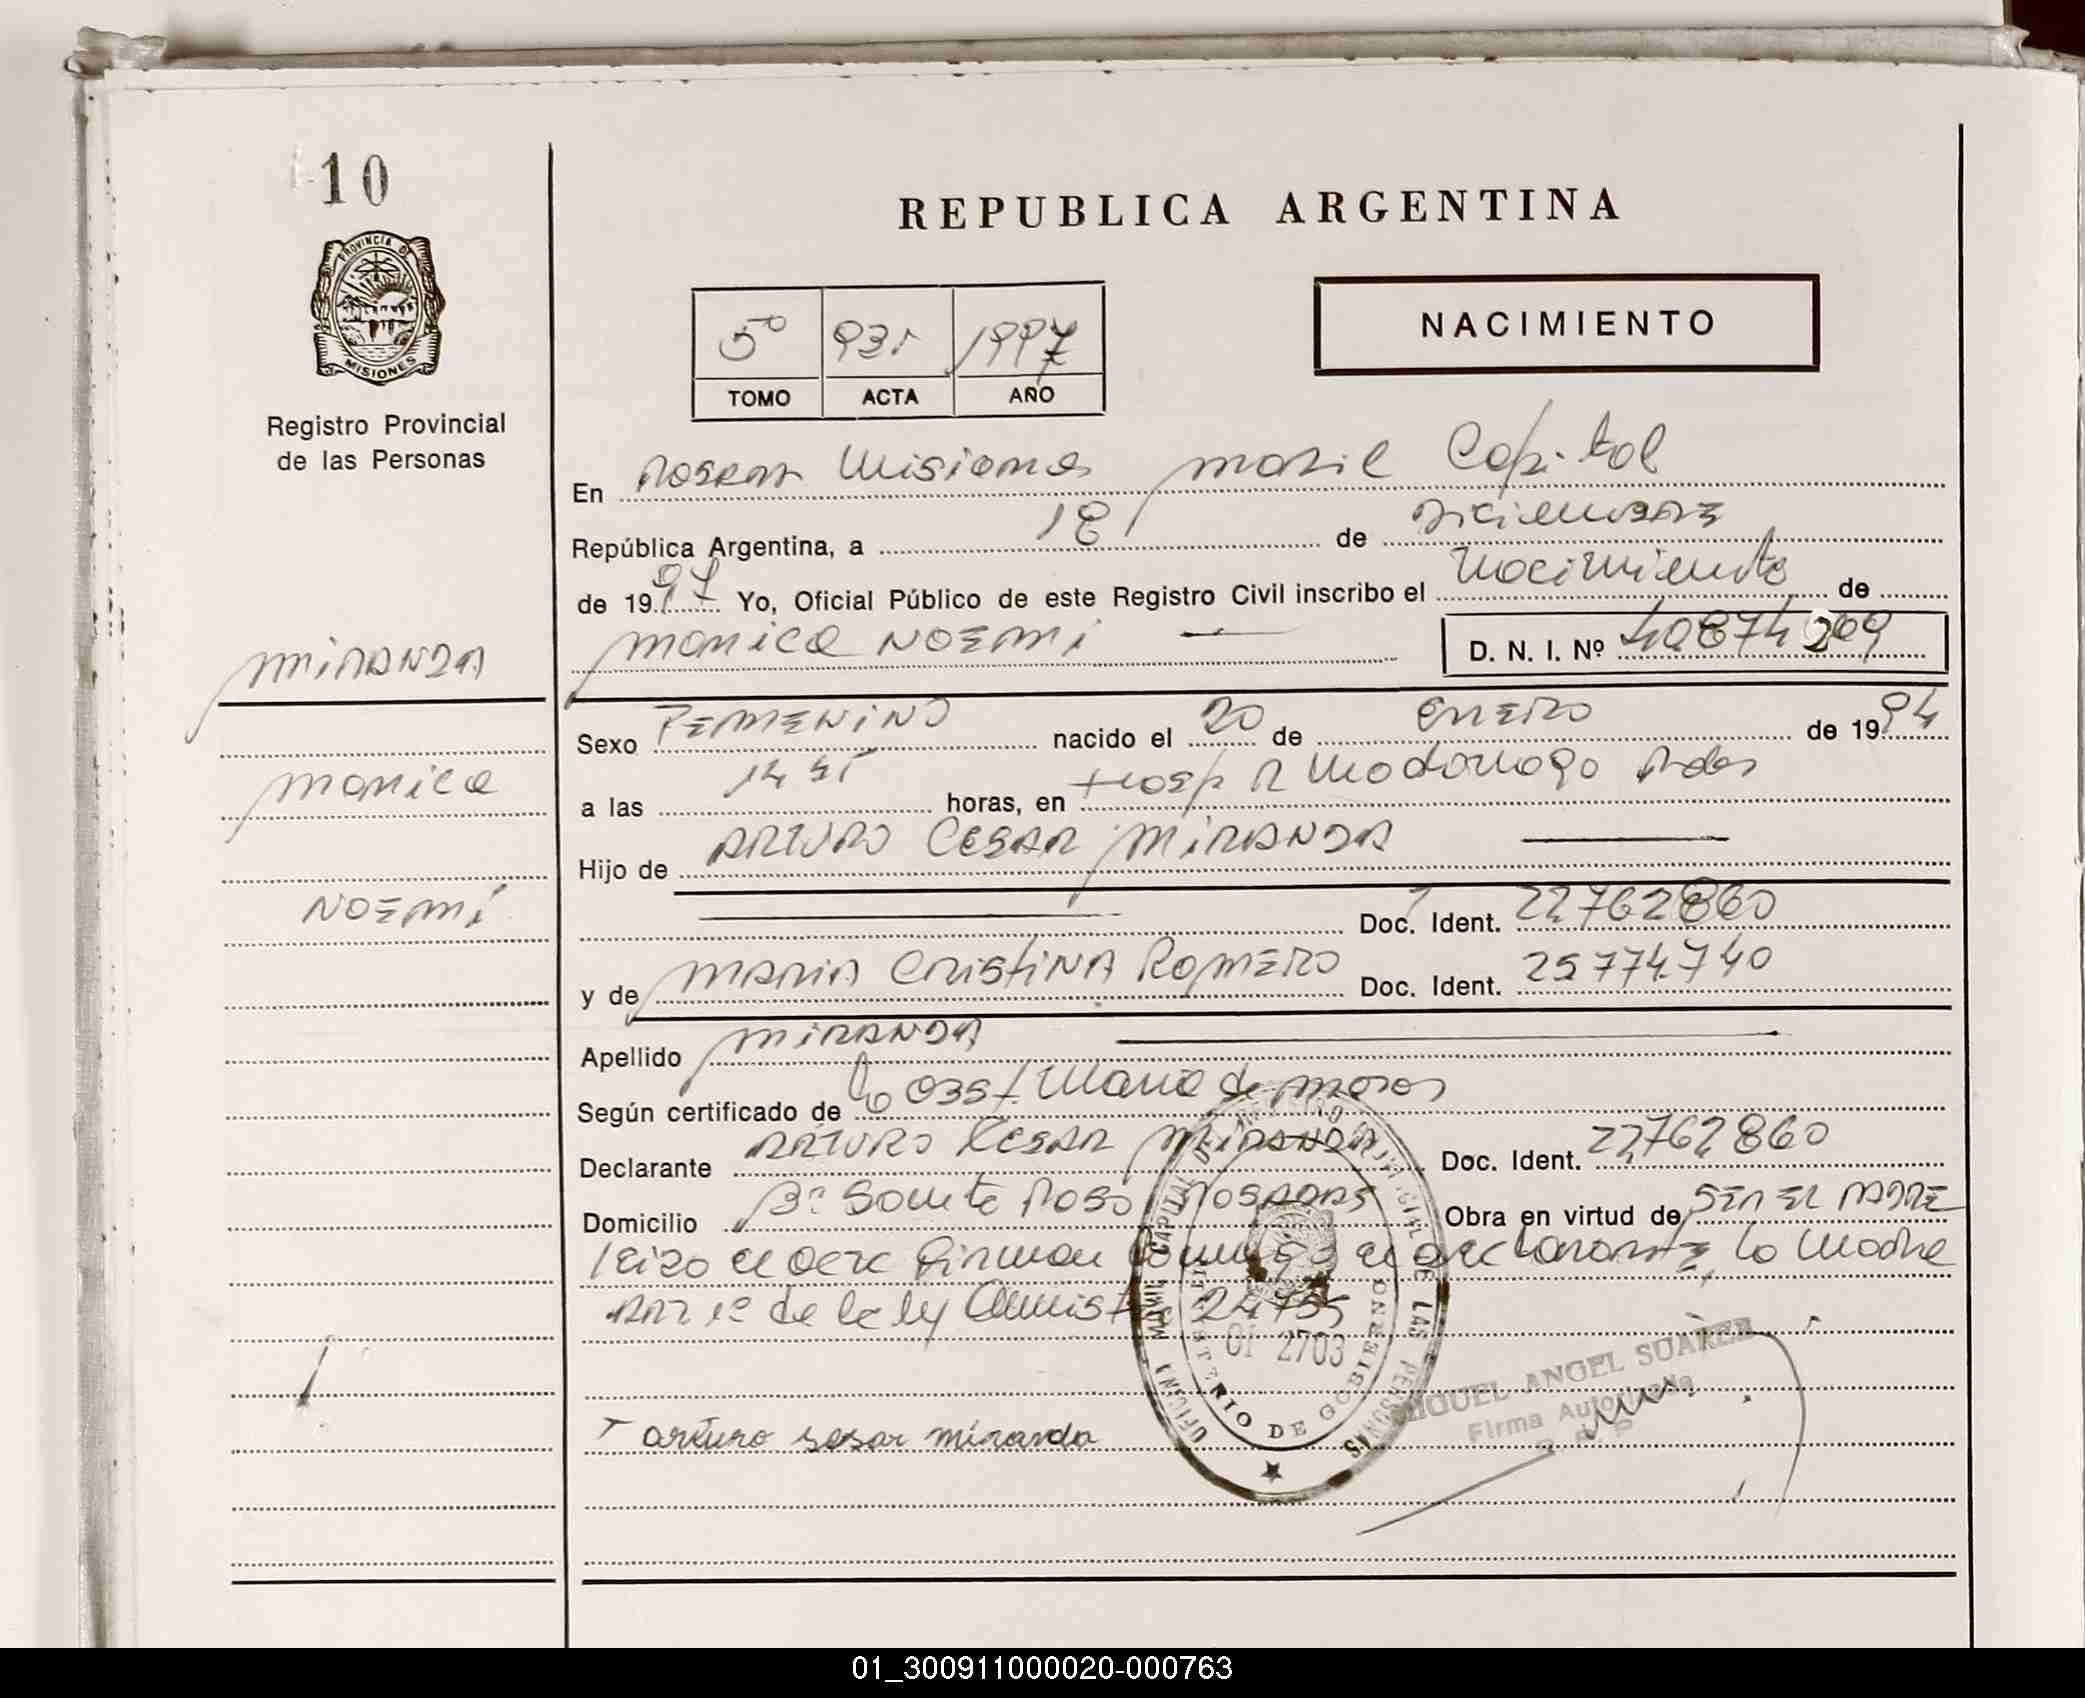 10
PROVINCIA DE
MISIONES
Registro Provincial
de las Personas
REPUBLICA ARGENTINA
5º 931 1997
TOMO ACTA AÑO
NACIMIENTO
En Misiones movil Capital
República Argentina, a 18 de Diciembre
de 1997 Yo, Oficial Público de este Registro Civil inscribo el Nacimiento de
Monica Noemi D. N. I. Nº 40874209
MIRANDA
Monica
Noemi
Sexo FEMENINO nacido el 20 de Enero de 1994
a las horas, en Hosp R Madariaga Pdas
Hijo de ARTURO CESAR MIRANDA
Doc. Ident. 22762860
y de MARIA CRISTINA ROMERO Doc. Ident. 25774740
Apellido MIRANDA
Según certificado de la Obst. Maria de
Declarante ARTURO CESAR MIRANDA Doc. Ident. 22762860
Domicilio Bº Posadas Obra en virtud de SER EL PADRE
el acta firman conmigo el declarante, la Madre
ART 1º de la ley 24755
01 2703
MINISTERIO DE GOBIERNO
MIGUEL ANGEL SUAREZ
Firma Autorizada
R. P. P
arturo sesar miranda
01_300911000020-000763